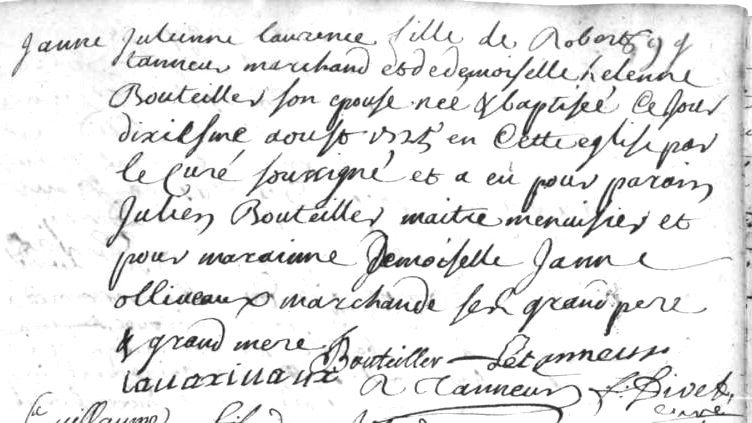 Janne Julienne laurence fille de Robert
tanneur marchand et de demoiselle helenne
Bouteiller son epouse neé & baptiseé Ce Jour
dixiesme aoust 1725 en Cette eglise par
le Curé soussigné et a eu pour parain
Julien Bouteiller maitre menuisier et
pour marainne Demoiselle Janne
olliveaux marchande ses grand pere
& grand mere
Bouteiller
R Tanneur f. Divet